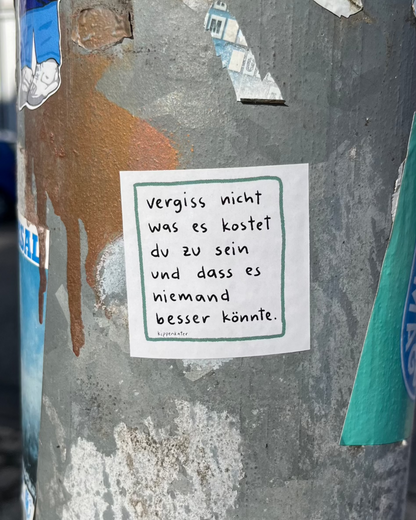 vergiss nicht
was es kostet
du zu sein
und dass es
niemand
besser könnte.